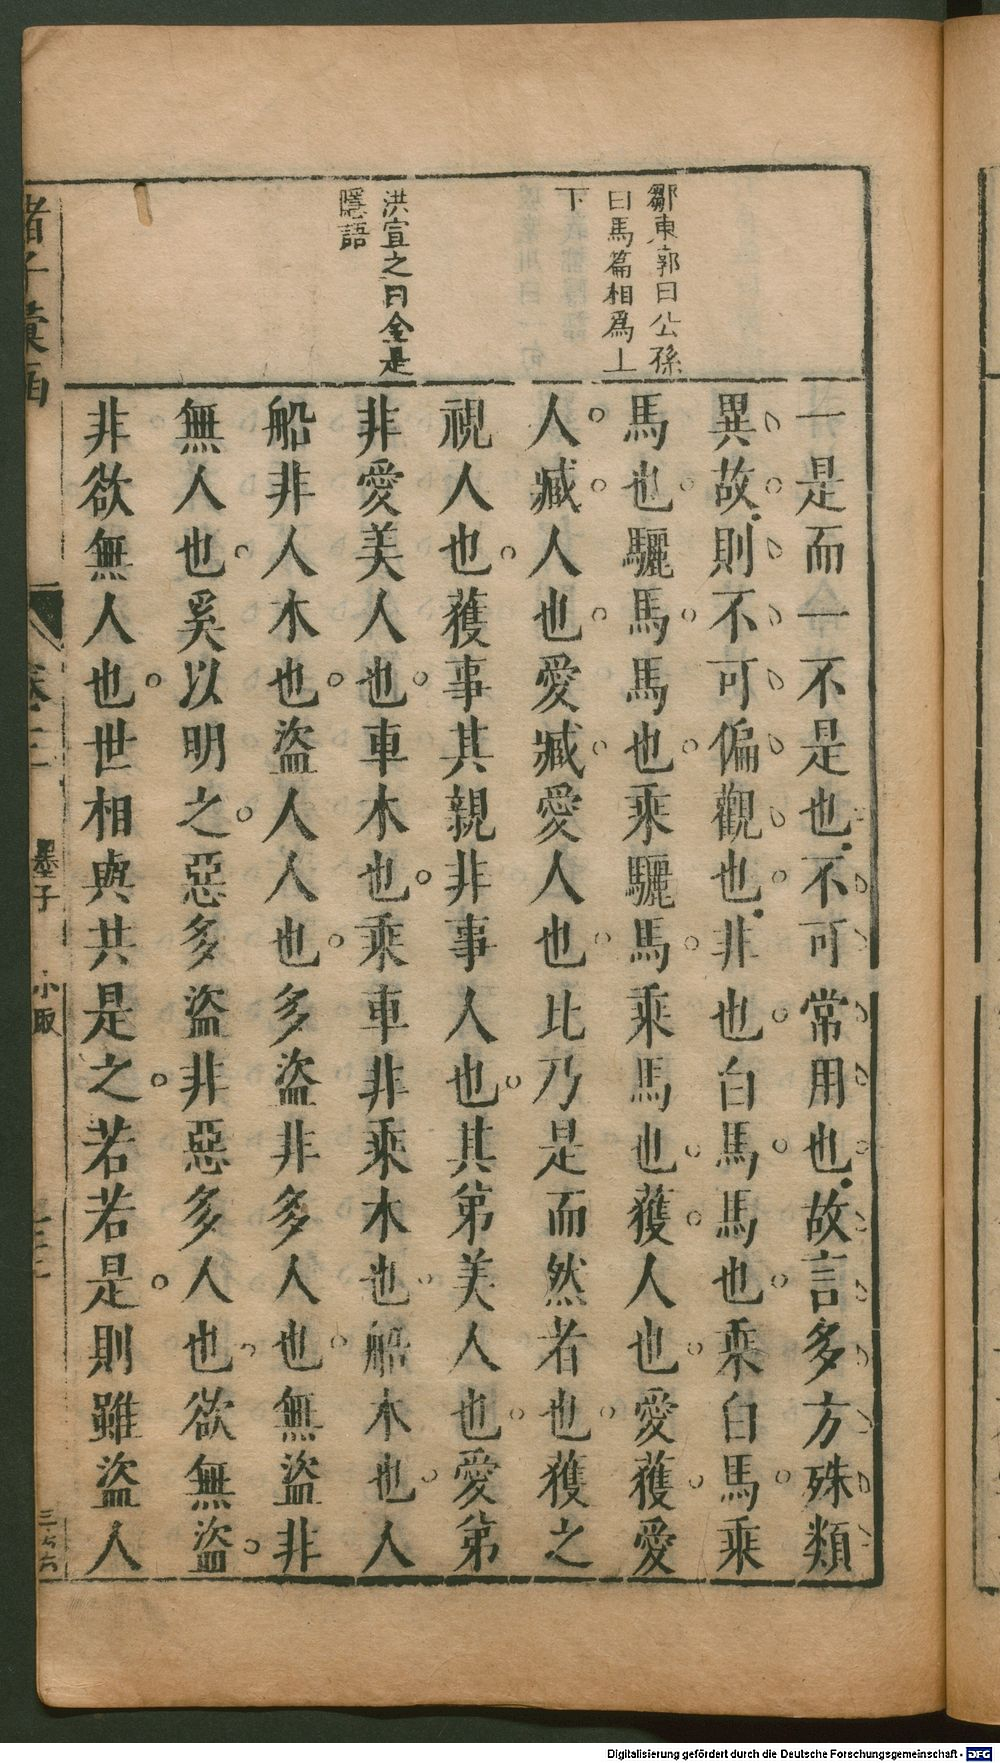 鄒東郭曰公孫
白馬篇相爲上
下
洪宣之曰全是
隱語
一是而一不是也不可常用也故言多方殊類
異故則不可偏觀也非也白馬馬也乘白馬乘
馬也驪馬馬也乘驪馬乘馬也獲人也愛獲愛
人臧人也愛臧愛人也比乃是而然者也獲之
視人也獲事其親非事人也其第美人也愛第
非愛美人也車木也乘車非乘木也船木也人
船非人木也盜人人也多盜非多人也無盜非
無人也奚以明之惡多盜非惡多人也欲無盜
非欲無人也世相與共是之若若是則雖盜人
諸子彙函
卷
墨子
小取
三六
Digitalisierung gefördert durch die Deutsche Forschungsgemeinschaft - DFG